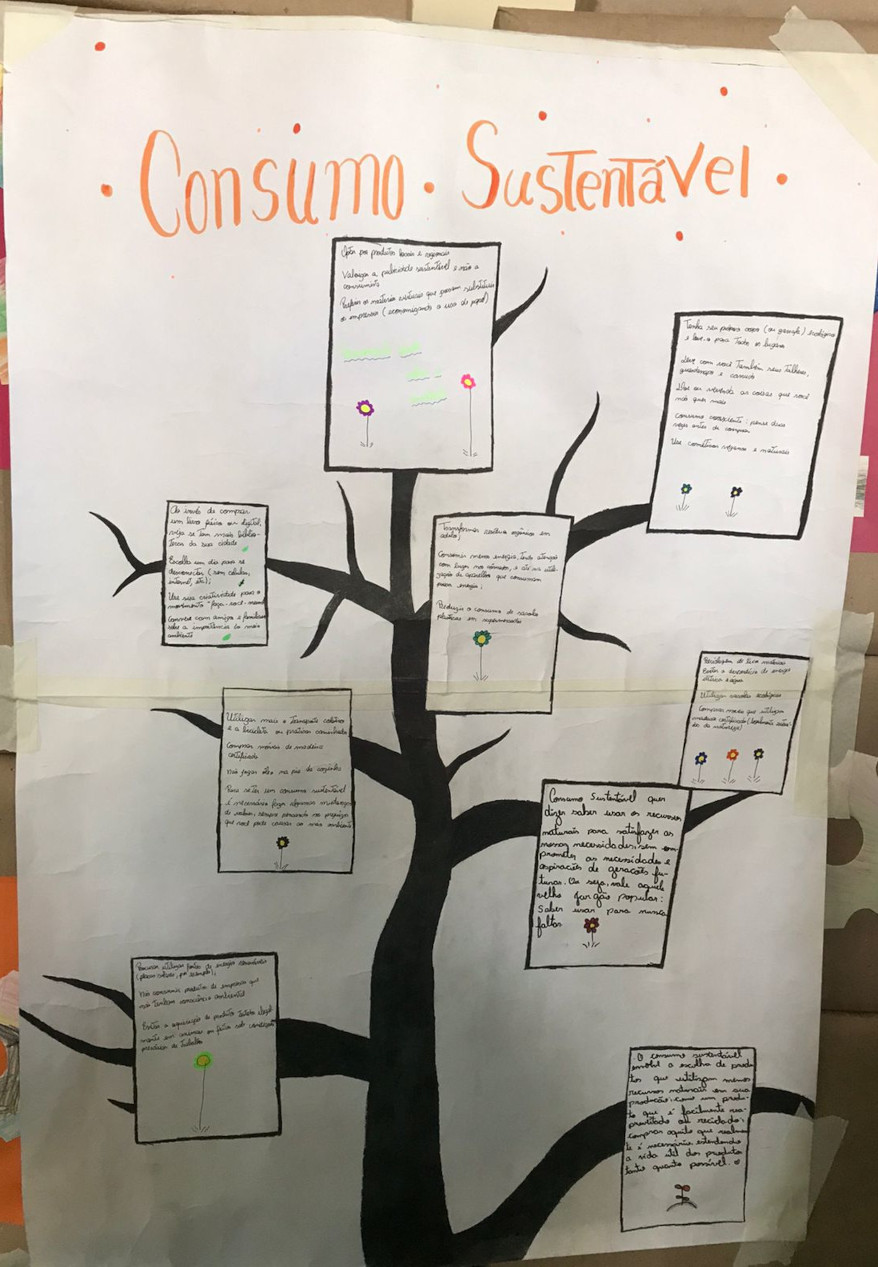 Consumo · Sustentável
Optar por produtos locais e regionais
Valorizar a publicidade sustentável e não a
consumista
Preferir os materiais virtuais que possam substituir
os impressos (economizando o uso do papel)
Tenha seu próprio copo (ou garrafa) ecológico
e leve-o para todos os lugares
Leve com você também seus talheres,
guardanapo e canudo
Doe ou venda as coisas que você
não quer mais
Consumo consciente: pense duas
vezes antes de comprar
Use cosméticos veganos e naturais
Ao invés de comprar
um livro físico ou digital,
veja se tem nas biblio-
tecas da sua cidade
Escolha um dia para se
desconectar (sem celular,
internet, etc);
Use sua criatividade para o
movimento "faça-você-mesmo"
Converse com amigos e familiares
sobre a importância do meio
ambiente
Transformar resíduo orgânico em
adubo;
Consumir menos energia, tanto
com luzes nos cômodos, e até na utili-
zação de aparelhos que consumam
pouca energia;
Reduzir o consumo de sacolas
plásticas em supermercados
Reciclagem de lixo
Evitar o desperdício de energia
elétrica e água
Utilizar sacolas ecológicas
Comprar móveis que utilizam
madeira certificada (legalmente
da natureza)
Utilizar mais o transporte coletivo
e a bicicleta ou praticar caminhada
Comprar móveis de madeira
certificada
Não jogar óleo na pia da cozinha
Para se ter um consumo sustentável
é necessário fazer algumas mudanças
de valores, sempre pensando no prejuízo
que você pode causar ao meio ambiente
Consumo Sustentável quer
dizer saber usar os recursos
naturais para satisfazer as
nossas necessidades, sem com
prometer as necessidades e
aspiracões de geracoes fu-
turas. Ou seja, vale aquele
velho jargão popular:
Saber usar para nunca
faltar
Procurar utilizar fontes de energia
(placas solares, por exemplo);
Não consumir produtos de empresas que
não tenham consciência ambiental
Evitar a aquisição de produtos
em animais ou feitos sob condições
precárias de trabalho
O consumo sustentável
envolve a escolha de produ
tos que utilizam menos
recursos naturais em sua
produção, como um produ-
to que é facilmente rea-
proveitado ou reciclado;
comprar aquilo que realmen
te é necessário, estendendo
a vida útil dos produtos
tanto quanto possível.